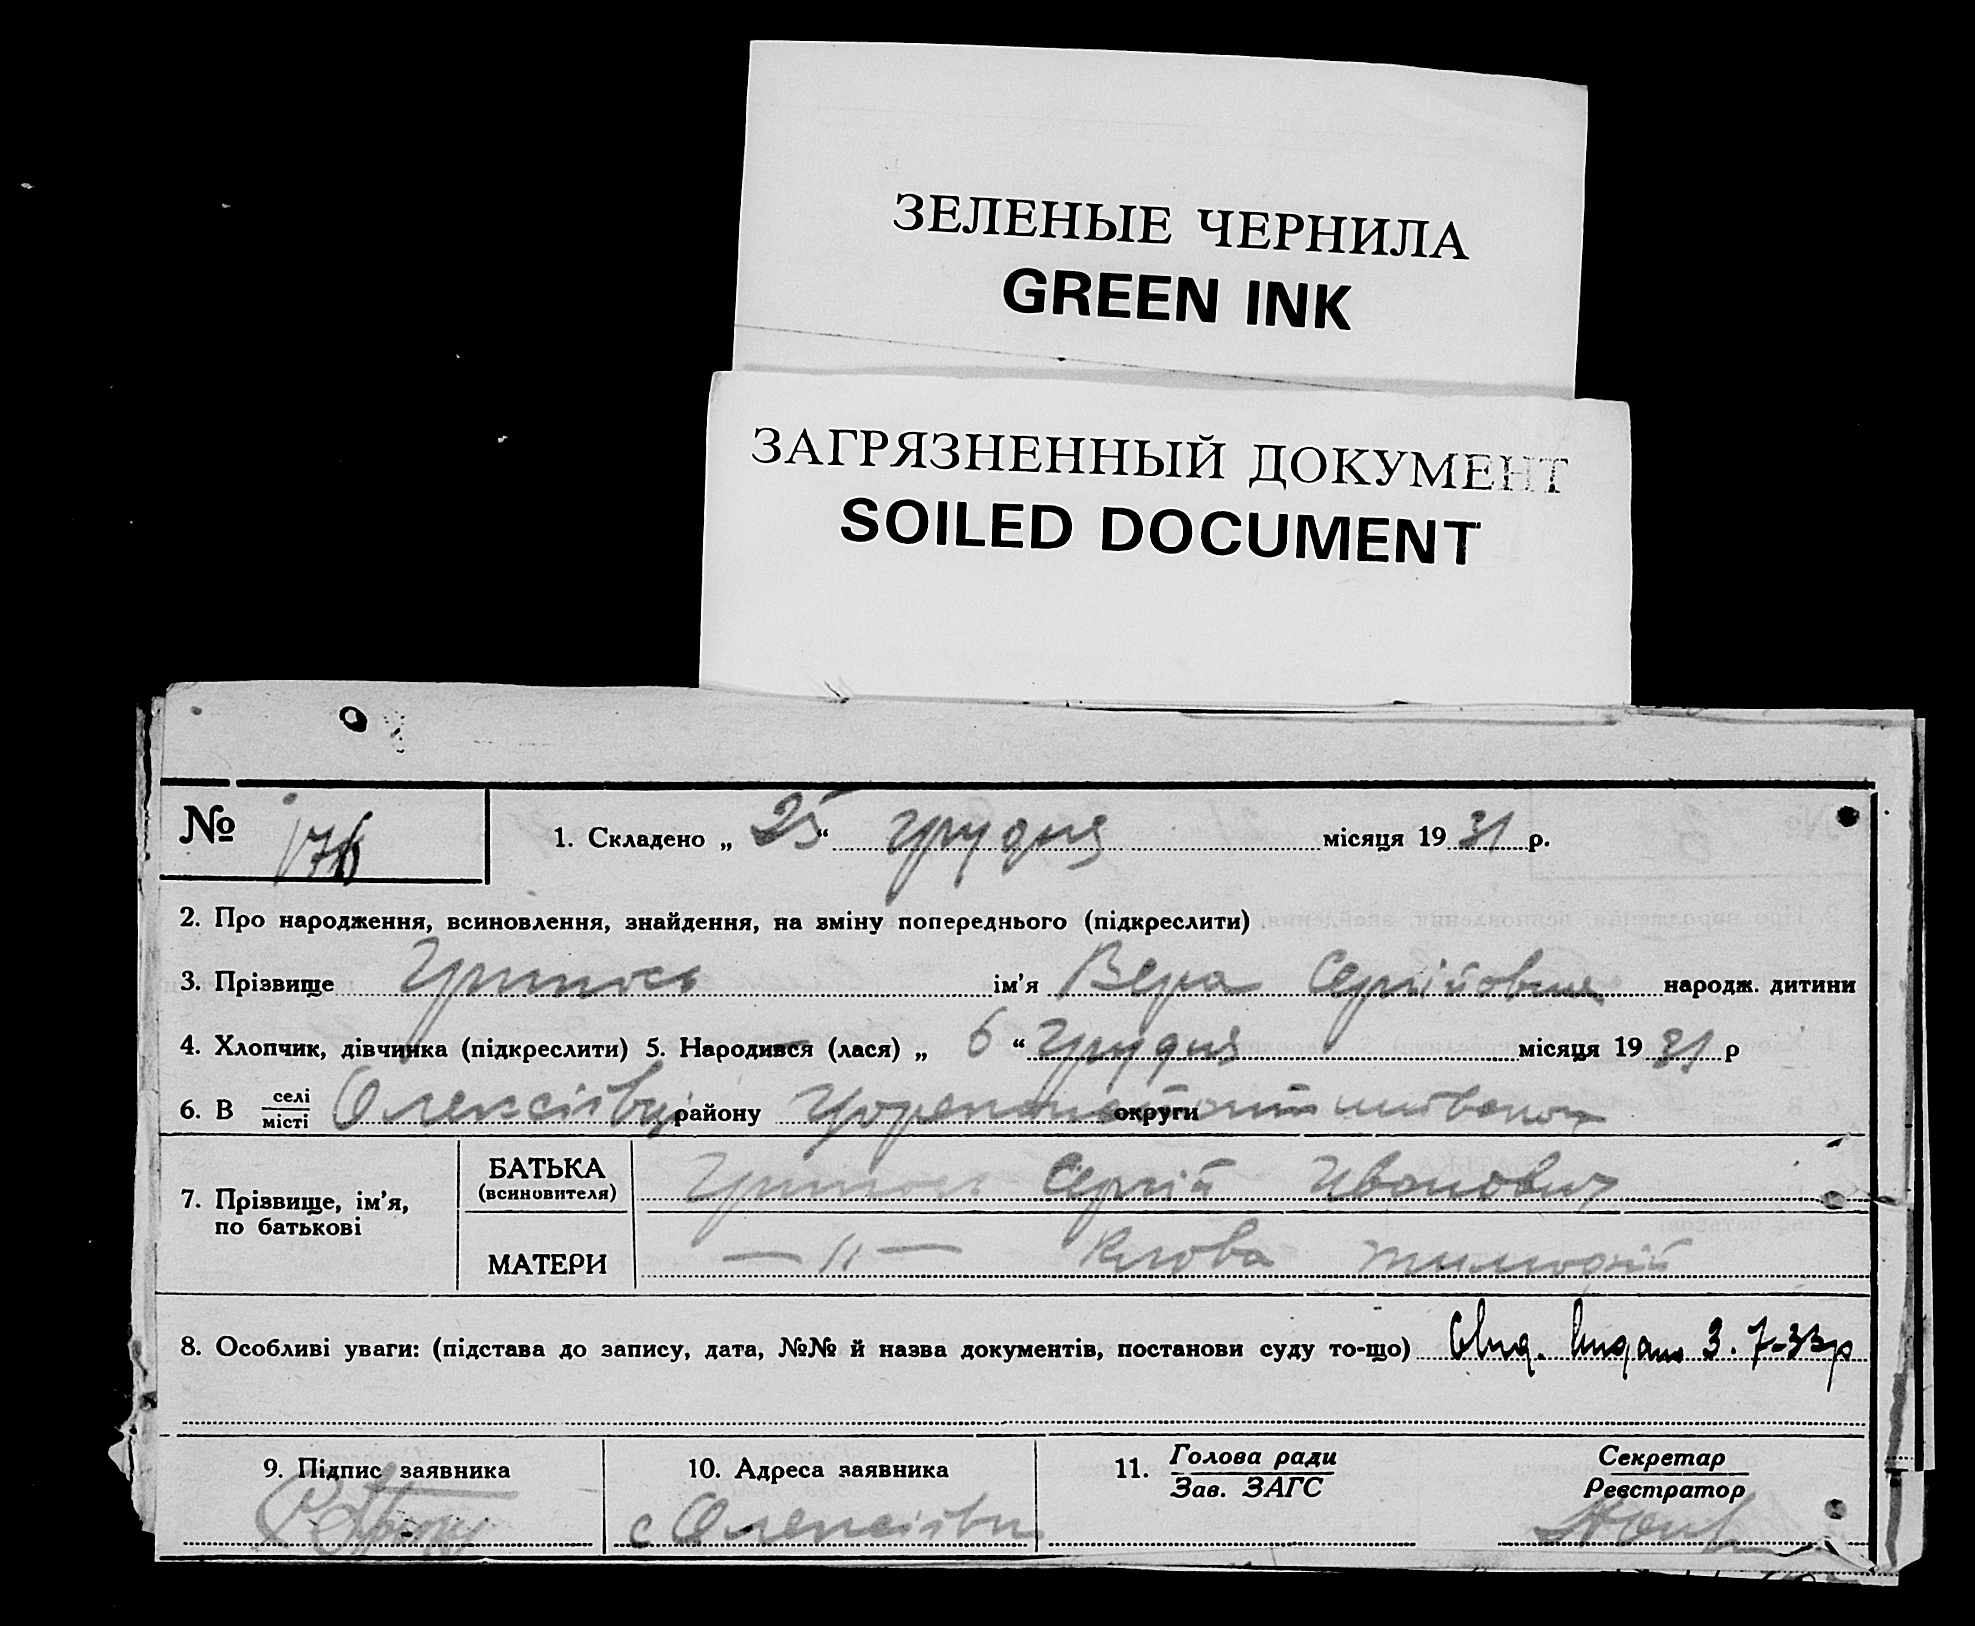 ЗЕЛЕНЫЕ ЧЕРНИЛА
GREEN INK
ЗАГРЯЗНЕННЫЙ ДОКУМЕНТ
SOILED DOCUMENT
№ 176
1. Складено „ 25 “ грудня місяця 1931 р.
2. Про народження, всиновлення, знайдення, на зміну попереднього (підкреслити)
3. Прізвище ім'я Вера Сергійовна народж. дитини
4. Хлопчик, дівчинка (підкреслити) 5. Народився (лася) „ 6 “ грудня місяця 1931 р
6. В селі/місті Олексіївці району округи
7. Прізвище, ім'я, по батькові
БАТЬКА (всиновителя) Сергій Иванович
МАТЕРИ — 〃 —
8. Особливі уваги: (підстава до запису, дата, №№ й назва документів, постанови суду то-що) 3. 7-33р
9. Підпис заявника
10. Адреса заявника
с Олексіївка
11. Голова ради / Зав. ЗАГС
Секретар / Реєстратор